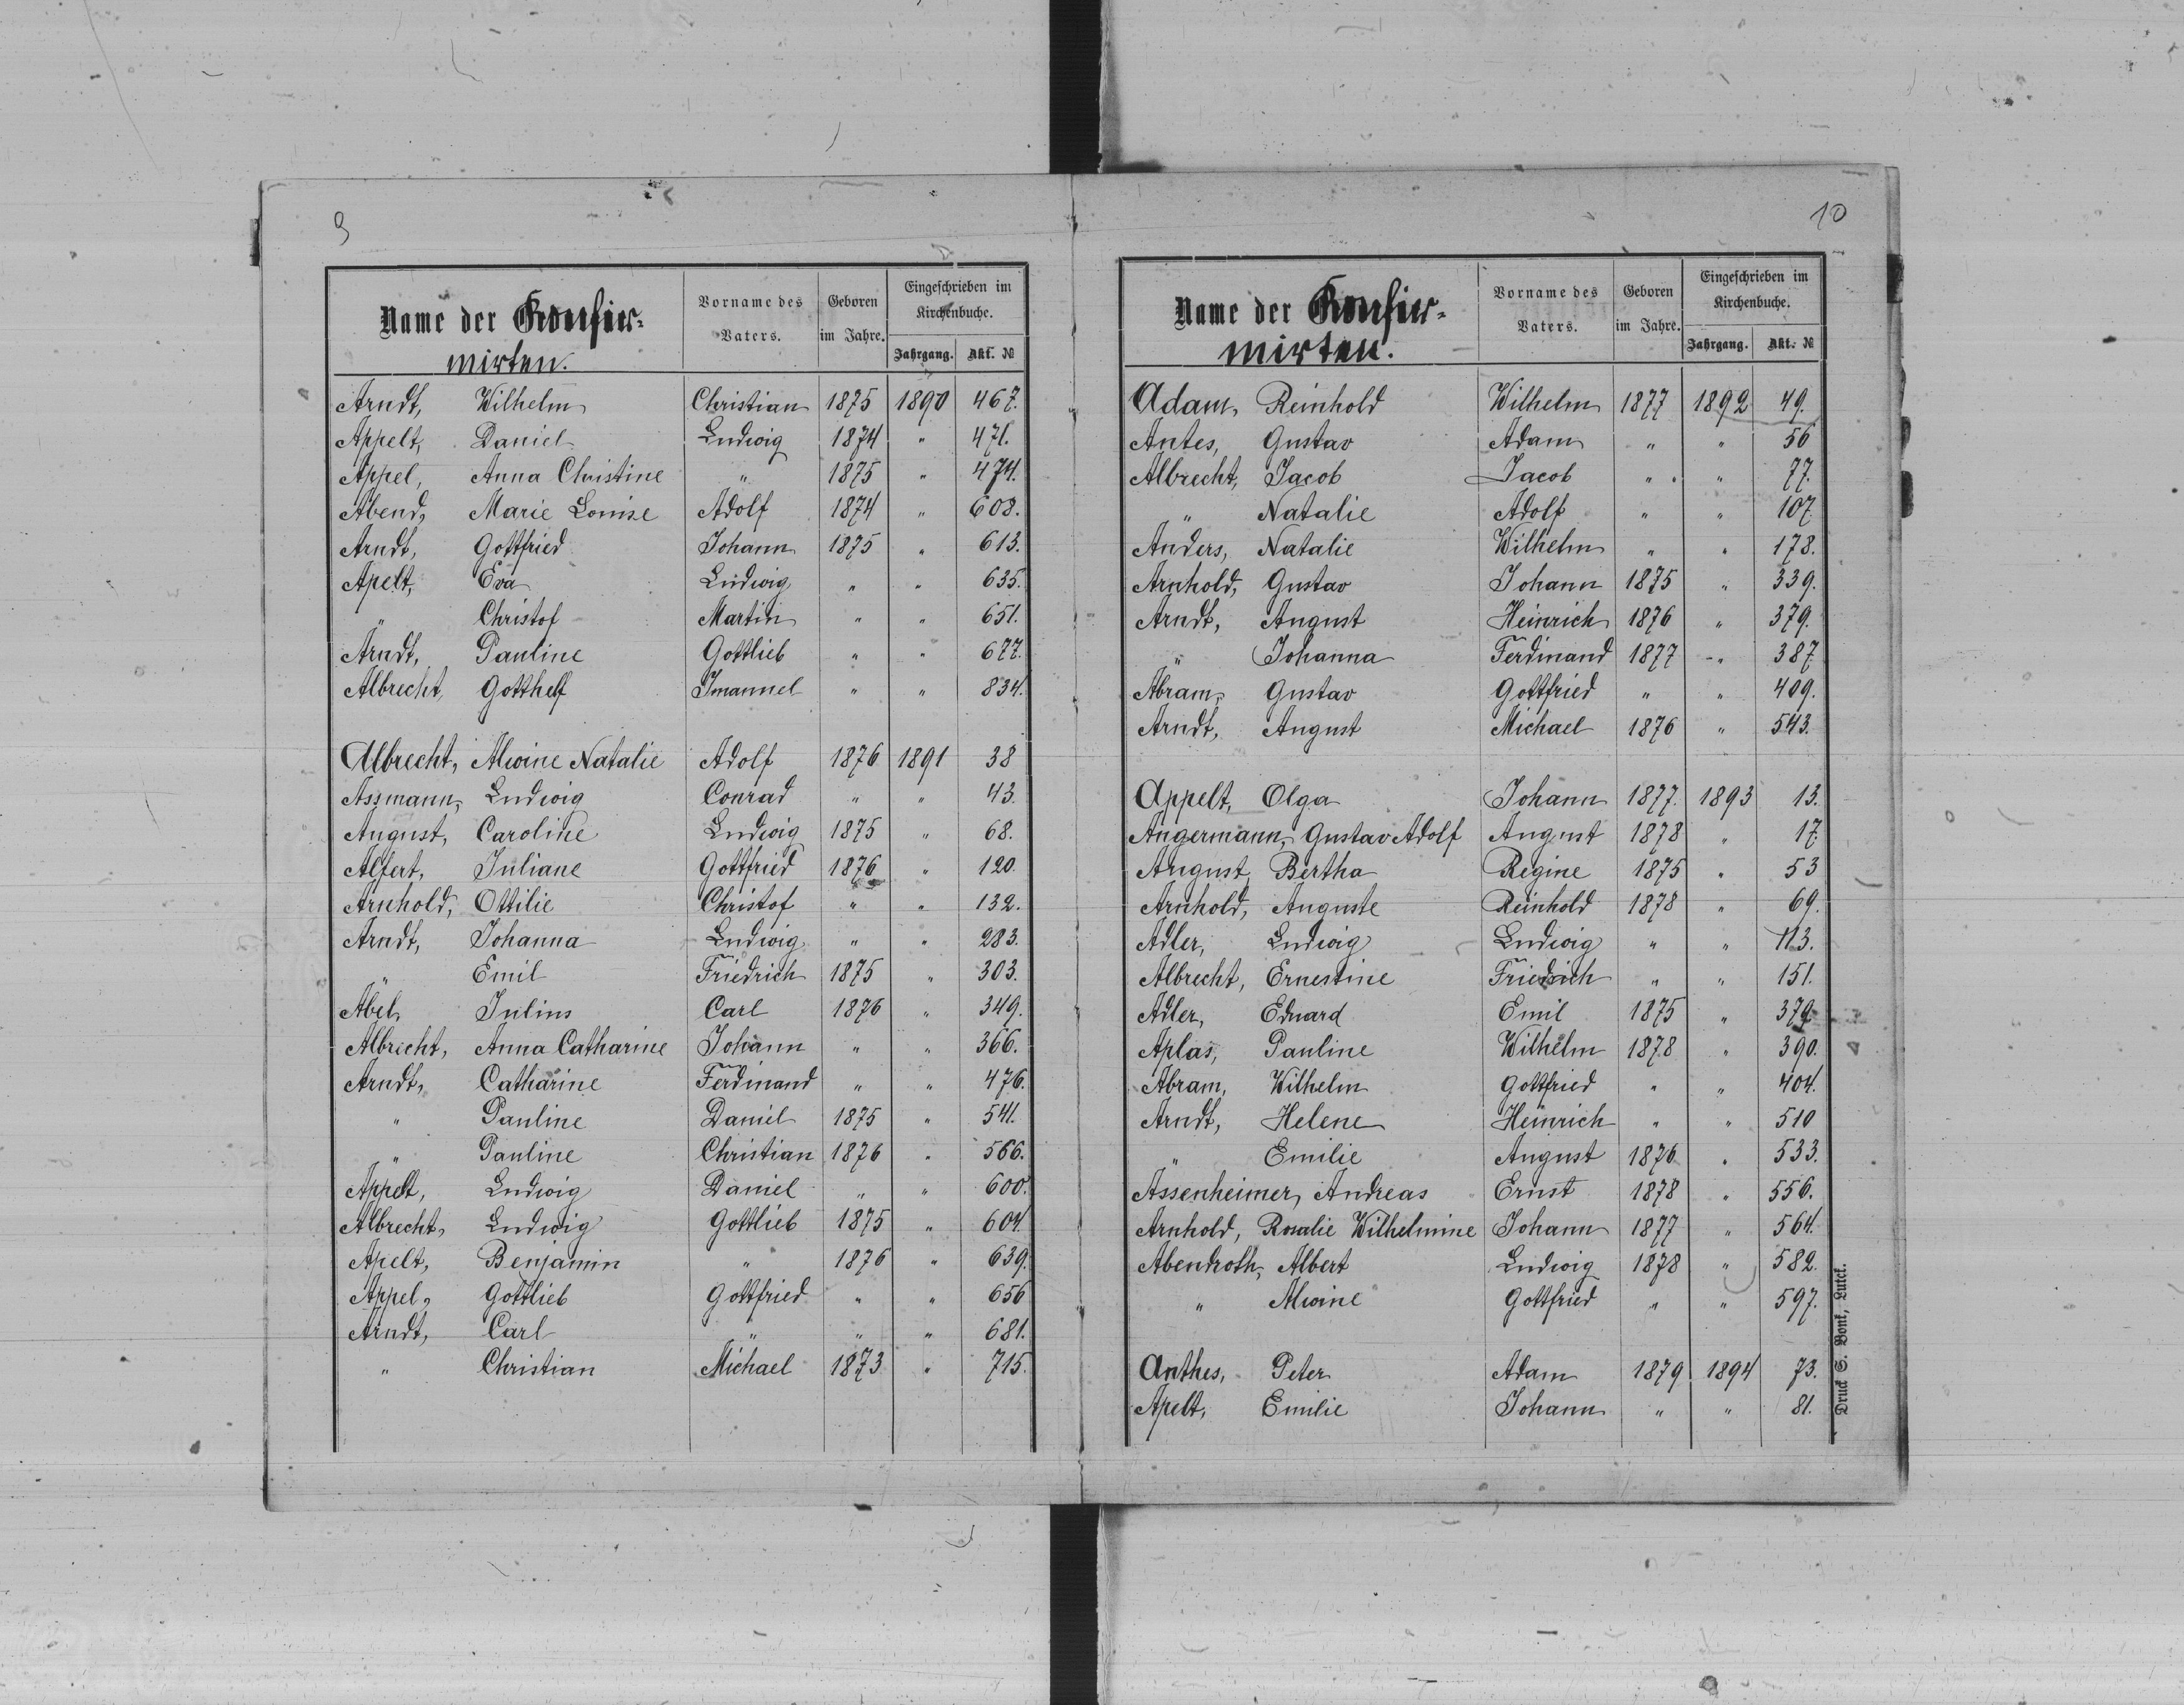 9
Name der Konfir-
mirten.
Vorname des
Vaters.
Geboren
im Jahre.
Eingeschrieben im
Kirchenbuche.
Jahrgang. Akt. №
Arndt, Wilhelm Christian 1875 1890 467.
Appelt, Daniel Ludwig 1874 " 471.
Appel, Anna Christine " 1875 " 474.
Abend, Marie Louise Adolf 1874 " 608.
Arndt, Gottfried Johann 1875 " 613.
Apelt, Eva Ludwig " " 635.
" Christof Martin " " 651.
Arndt, Pauline Gottlieb " " 677.
Albrecht, Gotthelf Imanuel " " 834.
Albrecht, Alwine Natalie Adolf 1876 1891 38
Assmann, Ludwig Conrad " " 43.
August, Caroline Ludwig 1875 " 68.
Alfert, Juliane Gottfried 1876 " 120.
Arnhold, Ottilie Christof " " 132.
Arndt, Johanna Ludwig " " 283.
" Emil Friedrich 1875 " 303.
Abel, Julius Carl 1876 " 349.
Albrecht, Anna Catharine Johann " " 366.
Arndt, Catharine Ferdinand " " 476.
" Pauline Daniel 1875 " 541.
" Pauline Christian 1876 " 566.
Appelt, Ludwig Daniel " " 600.
Albrecht, Ludwig Gottlieb 1875 " 604.
Apelt, Benjamin " 1876 " 639.
Appel, Gottlieb Gottfried " " 656
Arndt, Carl " " " 681.
" Christian Michael 1873 " 715.
10
Name der Konfir-
mirten.
Vorname des
Vaters.
Geboren
im Jahre.
Eingeschrieben im
Kirchenbuche.
Jahrgang. Akt. №
Adam, Reinhold Wilhelm 1877 1892 49.
Antes, Gustav Adam " " 56
Albrecht, Jacob Jacob " " 77.
" Natalie Adolf " " 107
Anders, Natalie Wilhelm " " 178.
Arnhold, Gustav Johann 1875 " 339.
Arndt, August Heinrich 1876 " 379.
" Johanna Ferdinand 1877 " 387
Abram, Gustav Gottfried " " 409.
Arndt, August Michael 1876 " 543.
Appelt, Olga Johann 1877. 1893 13.
Angermann, Gustav Adolf August 1878 " 17.
August, Bertha Regine 1875 " 53
Arnhold, Auguste Reinhold 1878 " 69.
Adler, Ludwig Ludwig " " 113.
Albrecht, Ernestine Friedrich " " 151.
Adler, Eduard Emil 1875 " 379.
Aplas, Pauline Wilhelm 1878 " 390.
Abram, Wilhelm Gottfried " " 404.
Arndt, Helene Heinrich " " 510
" Emilie August 1876 " 533.
Assenheimer, Andreas Ernst 1878 " 556.
Arnhold, Rosalie Wilhelmine Johann 1877 " 564.
Abendroth, Albert Ludwig 1878 " 582.
" Alwine Gottfried " " 597.
Anthes, Peter Adam 1879 1894 73.
Apelt, Emilie Johann " " 81.
Druck S. Bonk, Lutck.